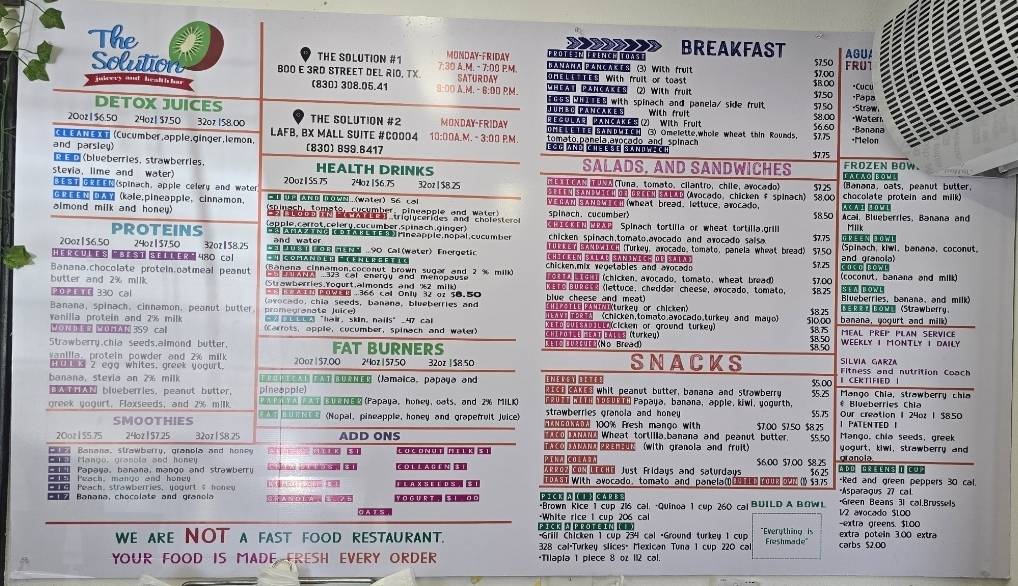 The Solution
juicery and health bar
DETOX JUICES
20oz|$6.50 24oz|$7.50 32oz|$8.00
CLEANEXT (Cucumber,apple,ginger,lemon,
and parsley)
RED (blueberries, strawberries,
stevia, lime and water)
BEST GREEN (spinach, apple celery and water
GREEN DAY (kale,pineapple, cinnamon,
almond milk and honey)
PROTEINS
20oz|$6.50 24oz|$7.50 32oz|$8.25
HERCULES "BEST SELLER" 480 cal
Banana,chocolate protein,oatmeal peanut
butter and 2% milk
POPEYE 330 cal
Banana, spinach, cinnamon, peanut butter,
vanilla protein and 2% milk
WONDER WOMAN 359 cal
Strawberry,chia seeds,almond butter,
vanilla, protein powder and 2% milk
HULK 2 egg whites, greek yogurt,
banana, stevia an 2% milk
BATMAN blueberries, peanut butter,
greek yogurt, Flaxseeds, and 2% milk
SMOOTHIES
20oz|$5.75 24oz|$7.25 32oz|$8.25
Banana, strawberry, granola and honey
Mango, granola and honey
Papaya, banana, mango and strawberry
Peach, mango and honey
Peach, strawberries, yogurt & honey
#17 Banana, chocolate and granola
WE ARE NOT A FAST FOOD RESTAURANT.
YOUR FOOD IS MADE FRESH EVERY ORDER
THE SOLUTION #1
800 E 3RD STREET DEL RIO, TX.
(830) 308.05.41
MONDAY-FRIDAY
7:30 A.M. - 7:00 P.M.
SATURDAY
9:00 A.M. - 6:00 P.M.
THE SOLUTION #2
LAFB, BX MALL SUITE #C0004
(830) 699.6417
MONDAY-FRIDAY
10:00A.M. - 3:00 P.M.
HEALTH DRINKS
20oz|$5.75 24oz|$6.75 32oz|$8.25
#1 UP AND DOWN (water) 56 cal
(spinach, tomato, cucumber, pineapple and water)
#2 BLOOD IN "(WATER) triglycerides and cholesterol
(apple,carrot,celery,cucumber,spinach,ginger)
#3 AMAZING (DIABETES) Pineapple,nopal,cucumber
and water
#3 JUST FOR MEN" ..90 Cal(water) Energetic
#4 COMANDER "ENERGETIC
(Banana cinnamon,coconut brown sugar and 2 % milk)
JUANA ...323 cal energy and menopause
(Strawberries,Yogurt,almonds and %2 milk)
BRAIN POWER ..366 cal Only 32 oz $8.50
(avocado, chia seeds, banana, blueberries and
promegranate juice)
BELLA "hair, skin, nails" ..47 cal
(Carrots, apple, cucumber, spinach and water)
FAT BURNERS
20oz|$7.00 24oz|$7.50 32oz|$8.50
TROPICAL FAT BURNER (Jamaica, papaya and
pineapple)
PAPAYA FAT BURNER (Papaya, honey, oats, and 2% MILK)
FAT BURNER (Nopal, pineapple, honey and grapefruit juice)
ADD ONS
$1 COCONUT MILK $1
$1 COLLAGEN $1
$1 FLAXSEEDS, $1
GRANOLA, $.75 YOGURT, $1.00
OATS,
BREAKFAST
PROTEIN FRENCH TOAST $7.50
BANANA PANCAKES (3) With fruit $7.00
OMELETTES With fruit or toast $8.00
WHEAT PANCAKES (2) With fruit $7.50
EGGS WHITES with spinach and panela/ side fruit $7.50
JUMBO PANCAKES With fruit $8.00
REGULAR PANCAKES (2) With Fruit $6.60
OMELETTE SANDWICH (3) Omelette,whole wheat thin Rounds, $7.75
tomato,panela,avocado and spinach
EGG AND CHEESE SANDWICH $7.75
SALADS, AND SANDWICHES
MEXICAN TUNA (Tuna, tomato, cilantro, chile, avocado) $7.25
GREEN SANDWICH OR GREEN SALAD (Avocado, chicken & spinach) $8.00
VEGAN SANDWICH (wheat bread, lettuce, avocado,
spinach, cucumber) $8.50
CHICKEN WRAP Spinach tortilla or wheat tortilla,grill
chicken spinach,tomato,avocado and avocado salsa. $7.75
TURKEY SANDWICH (Turkey, avocado, tomato, panela wheat bread) $7.50
CHICKEN SALAD SANDWICH OR SALAD
chicken,mix vegetables and avocado $7.25
TORTA LIGHT (chicken, avocado, tomato, wheat bread) $7.00
KETO BURGER (lettuce, cheddar cheese, avocado, tomato, $8.25
blue cheese and meat)
CHIPOTLE PANINI (turkey or chicken) $8.25
HEAVY TORTA (chicken,tomato,avocado,turkey and mayo) $10.00
KETO QUESADILLA (cicken or ground turkey) $8.75
CHIPOTLE MEAT BALLS (turkey) $8.50
KETO BURGUER (No Bread) $8.50
SNACKS
ENERGY BITES $5.00
RICE CAKES whit peanut butter, banana and strawberry $5.25
FRUIT WITH YOGURTH Papaya, banana, apple, kiwi, yogurth,
strawberries granola and honey $5.75
MANGONADA 100% Fresh mango with $7.00 $7.50 $8.25
TACO BANANA Wheat tortilla,banana and peanut butter. $5.50
TACO BANANA PREMIUM (with granola and fruit)
PINA COLADA $6.00 $7.00 $8.25
ARROZ CON LECHE Just Fridays and saturdays $6.25
TOAST With avocado, tomato and panela(1) BUILD YOUR OWN (1) $3.75
PICK A (1) CARBS
•Brown Rice 1 cup 216 cal. •Quinoa 1 cup 260 cal
•White rice 1 cup 206 cal
PICK A PROTEIN (1)
•Grill Chicken 1 cup 234 cal •Ground turkey 1 cup
328 cal•Turkey slices• Mexican Tuna 1 cup 220 cal
•Tilapia 1 piece 8 oz 112 cal.
BUILD A BOWL
"Everything is
Freshmade"
AGUA
FRUT
•Cucu
•Papa
•Straw
•Waterm
•Banana
•Melon
FROZEN BOW
CACAO BOWL
(Banana, oats, peanut butter,
chocolate protein and milk)
ACAI BOWL
Acai, Blueberries, Banana and
Milk
GREEN BOWL
(Spinach, kiwi, banana, coconut,
and granola)
COCO BOWL
(coconut, banana and milk)
SEA BOWL
Blueberries, banana, and milk)
BERRY BOWL (Strawberry,
banana, yogurt and milk)
MEAL PREP PLAN SERVICE
WEEKLY | MONTLY | DAILY
SILVIA GARZA
Fitness and nutrition Coach
| CERTIFIED |
Mango Chia, strawberry chia
& Blueberries Chia
Our creation | 24oz | $8.50
| PATENTED |
Mango, chia seeds, greek
yogurt, kiwi, strawberry and
granola.
ADD GREENS 1 CUP
•Red and green peppers 30 cal.
•Asparagus 27 cal.
•Green Beans 31 cal.Brussels
1/2 avocado $1.00
-extra greens. $1.00
extra potein 3.00 extra
carbs $2.00